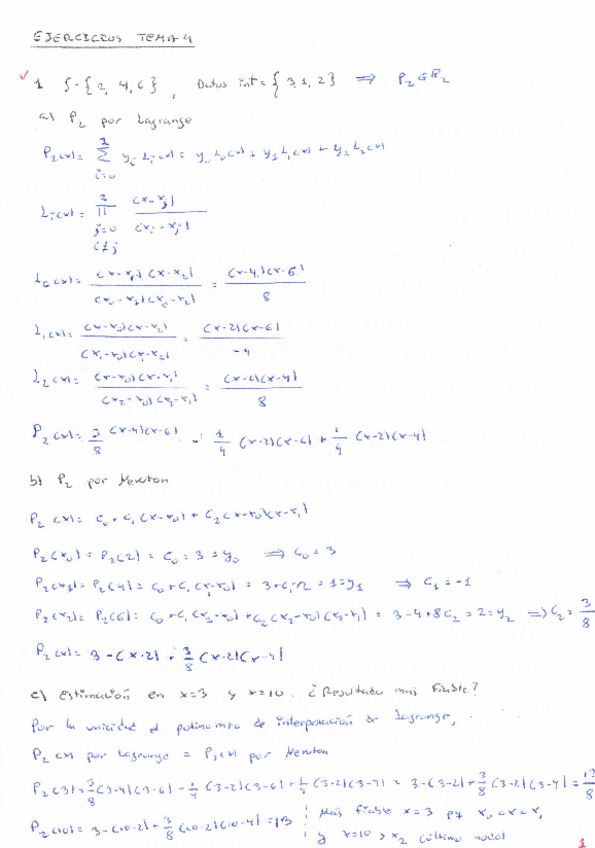 EJERCICIOS TEMA 4
✓ 1 S={2, 4, 6}, Datos int={3, 1, 2} ⟹ P₂ ∈ ℙ₂
a) P₂ por Lagrange
P₂(x) = Σ_{i=0}^{2} yᵢ Lᵢ(x) = y₀ L₀(x) + y₁ L₁(x) + y₂ L₂(x)
Lᵢ(x) = Π_{j=0, i≠j}^{2} (x-xⱼ) / (xᵢ-xⱼ)
L₀(x) = (x-x₁)(x-x₂) / (x₀-x₁)(x₀-x₂) = (x-4)(x-6) / 8
L₁(x) = (x-x₀)(x-x₂) / (x₁-x₀)(x₁-x₂) = (x-2)(x-6) / -4
L₂(x) = (x-x₀)(x-x₁) / (x₂-x₀)(x₂-x₁) = (x-2)(x-4) / 8
P₂(x) = 3/8 (x-4)(x-6) - 1/4 (x-2)(x-6) + 1/4 (x-2)(x-4)
b) P₂ por Newton
P₂(x) = C₀ + C₁(x-x₀) + C₂(x-x₀)(x-x₁)
P₂(x₀) = P₂(2) = C₀ = 3 = y₀ ⟹ C₀ = 3
P₂(x₁) = P₂(4) = C₀ + C₁(x₁-x₀) = 3 + C₁·2 = 1 = y₁ ⟹ C₁ = -1
P₂(x₂) = P₂(6) = C₀ + C₁(x₂-x₀) + C₂(x₂-x₀)(x₂-x₁) = 3 - 4 + 8C₂ = 2 = y₂ ⟹ C₂ = 3/8
P₂(x) = 3 - (x-2) + 3/8 (x-2)(x-4)
c) estimación en x=3 y x=10. ¿Resultado más fiable?
Por la unicidad el polinomio de interpolación de Lagrange,
P₂(x) por Lagrange = P₂(x) por Newton
P₂(3) = 3/8 (3-4)(3-6) - 1/4 (3-2)(3-6) + 1/4 (3-2)(3-4) = 3-(3-2) + 3/8 (3-2)(3-4) = 13/8
P₂(10) = 3-(10-2) + 3/8 (10-2)(10-4) = 13 Más fiable x=3 pq x₀<x<x₁
y x=10 > x₂ (último nodo)
1